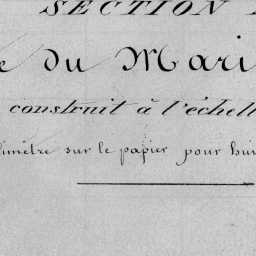 SECTION
du Mari
construit à l'échell
limètre sur le papier pour hui